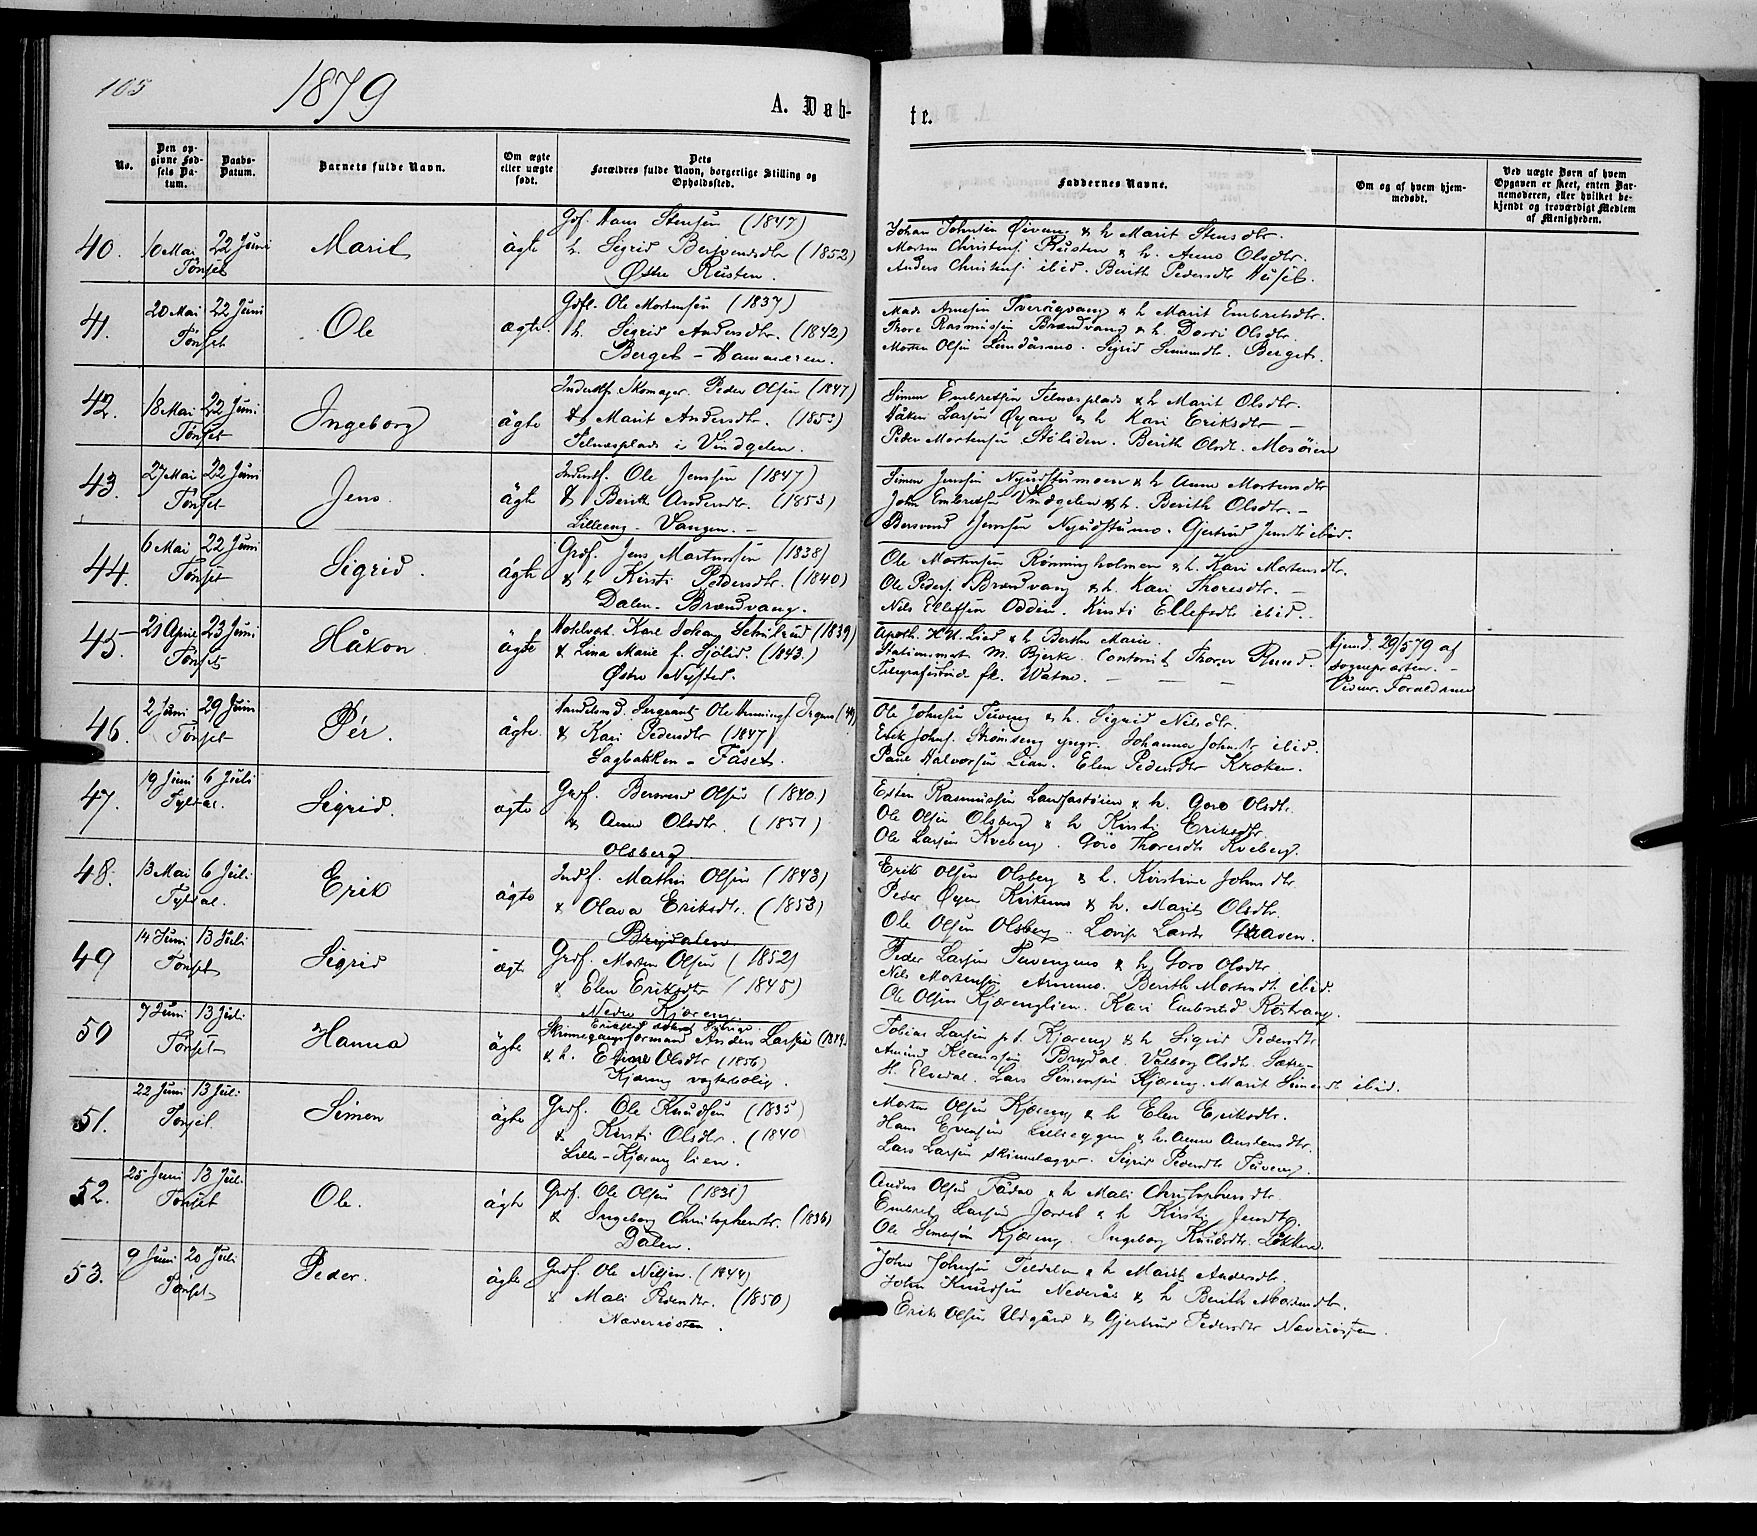 105
1879
A. Døb-
te.
No.
Den op-
givne Fød-
sels Da-
tum.
Daabs-
Datum.
Barnets fulde Navn.
Om ægte
eller uægte
født.
Dets
Forældres fulde Navn, borgerlige Stilling og
Opholdssted.
Faddernes Navne.
Om og af hvem hjem-
medøbt.
Ved uægte Børn af hvem
Opgaven er skeet, enten Bar-
nemoderen, eller hvilket be-
kjendt og troværdigt Medlem
af Menigheden.
40. 10 Mai 22 Juni Tønset Marit ägte
Grdf. Hans Stensen (1847)
h. Sigrid Bersvendsdtr (1852)
Østre Rusten.
Johan Johnsen Øiveng & h Marit Stensdtr.
Morten Christens. Rusten & h. Anne Olsdtr.
Anders Christens. ibid. Berith Pedersdtr Huset.
41. 20 Mai 22 Juni Tønset Ole ægte
Grdf. Ole Mortensen (1837)
h. Sigrid Andersdtr. (1842)
Berget - Hammeren.
Mads Arnesen Tverågvang & h Marit Embretsdtr.
Thore Rasmussen Brændvang & h. Dorri Olsdtr.
Morten Olsen Lundåsmo. Sigrid Simensdtr. Berget.
42. 18 Mai 22 Juni Tønset Ingeborg ägte
Inderstf. Skomager Peder Olsen (1847)
& h Marit Andersdtr. (1853)
Telnesplads i Vindgelen.
Simen Embretsen Telnesplads & h Marit Olsdtr.
Håken Larsen Øyan & h Kari Eriksdtr -
Peder Mortensen Støliden. Berith Olsdt. Mosøien
43. 27 Mai 22 Juni Tønset Jens. ägte
Inderstf. Ole Jenssen (1847)
& Berith Andersdtr. (1853)
Lilleeng - Vangen. -
Simen Jenssen Nyudstumoen & h Anne Mortensdtr
John Embretsen Vindgelen & h. Berith Olsdtr. -
Bersvend Jenssen Nyudstumo. Gjertrud Jensdtr ibid.
44. 6 Mai 22 Juni Tønset Sigrid. ägte
Grdf. Jens Mortenssen (1838)
& h Kirsti Pedersdtr. (1840)
Dalen - Brændvang.
Ole Mortensen Rønningholmen & h. Kari Mortensdtr.
Ole Peders. Brændvang & h. Kari Thoresdtr. -
Nils Ellefsen Odden. Kirsti Ellefsdtr ibid.
45. 21 April 23 Juni Tønset Håkon. ägte
Hotelvært. Karl Johan Schulrud (1839)
& Lina Marie f. Sjølid. (1843.)
Østre Nysted.
Apoth. H. H. Lied & h Berthe Marie.
Stationsmst M. Bjerke. Contorist Thorer Ruud.
Telegrafistinde frk. Watne. - - -
hjemd. 29/5 79 af
sognepræsten. -
Vidner. Forældrene
46. 2 Juni 29 Juni Tønset Pér. ägte
Handelsmd. Sergeant Ole Henningf. (49)
& Kari Pedersdtr (1847)
Sagbakken - Fåset.
Ole Johnsen Tuveng & h. Sigrid Nilsdtr.
Erik Johns. Strømseng yngr. Johanna Johnsdtr ibid.
Paul Halvorsen Lian. Elen Pedersdtr Kroken.
47. 19 Juni 6 Juli Tyldal. Sigrid. ægte
Grdf. Bersvend Olsen (1840)
& Anne Olsdtr. (1851)
Olsberg
Esten Rasmussen & h. Goro Olsdtr.
Ole Olsen Olsberg & h Kirsti Eriksdtr.
Ole Larsen Kveberg. Goro Thoresdtr Kveberg.
48. 13 Mai 6 Juli Tyldal. Erik ägte
Indf. Mathis Olsen (1843)
& Olava Eriksdtr. (1853)
Brydalen
Erik Olsen Olsberg & h. Kirstine Johnsdtr.
Peder Øyen Kirkemo & h. Marit Olsdtr.
Ole Olsen Olsberg. Lovise Larsdtr Graven.
49 14 Juni 13 Juli Tønset Sigrid ægte
Grdf. Morten Olsen (1852)
& Elen Eriksdtr (1845)
Nedre Kjæreng.
Peder Larsen Tuvengens & h Goro Olsdtr
Nils Mortensen Arnemo. Berith Mortensdtr ibid.
Ole Olsen Kjærenglien. Kari Embretsd Røstvang.
50 7 Juni 13 Juli Tønset Hanna ägte
Skinnegangsformand Anders Larsen
& h. Olsdtr (1856)
Kjæreng vogterbolig.
Tobias Larsen p.t. Kjæreng & h Sigrid Pedersdtr
Amund Klemssen Brydal. Valborg Olsdtr. Sæter-
H. Elvedal. Lars Simensen Kjæreng. Marit Simensdtr ibid.
51. 22 Juni 13 Juli Tønset. Simen ägte
Grdf. Ole Knudsen (1835)
& Kirsti Olsdtr. (1840
Lille-Kjæreng lien.
Morten Olsen Kjæreng & h Elen Eriksdtr.
Hans Evensen Lilleeggen & h. Anne Anstensdtr.
Lars Larsen skinnelægger. Sigrid Pedersdtr Tuveng.
52. 25 Juni 13 Juli Tønset Ole. ägte
Grdf. Ole Olsen (1831)
& Ingeborg Christophersdtr. (1836)
Dalen.
Anders Olsen & h Mali Christophersdtr.
Embret Larsen Jordet & h Kirsti Jensdtr.
Ole Simensen Kjæreng. Ingeborg Knudsdtr. Løkken.
53. 9 Juni 20 Juli Tønset Peder. ägte
Grdf. Ole Nilsen. (1844)
& Mali Pedersdtr. (1850)
Næverrøsten.
John Johnsen Teldalen & h Marit Andersdtr.
John Knudsen Nederås & h Berith Mortensdtr.
Erik Olsen Udgård & Gjertrud Pedersdtr Næverøsten.